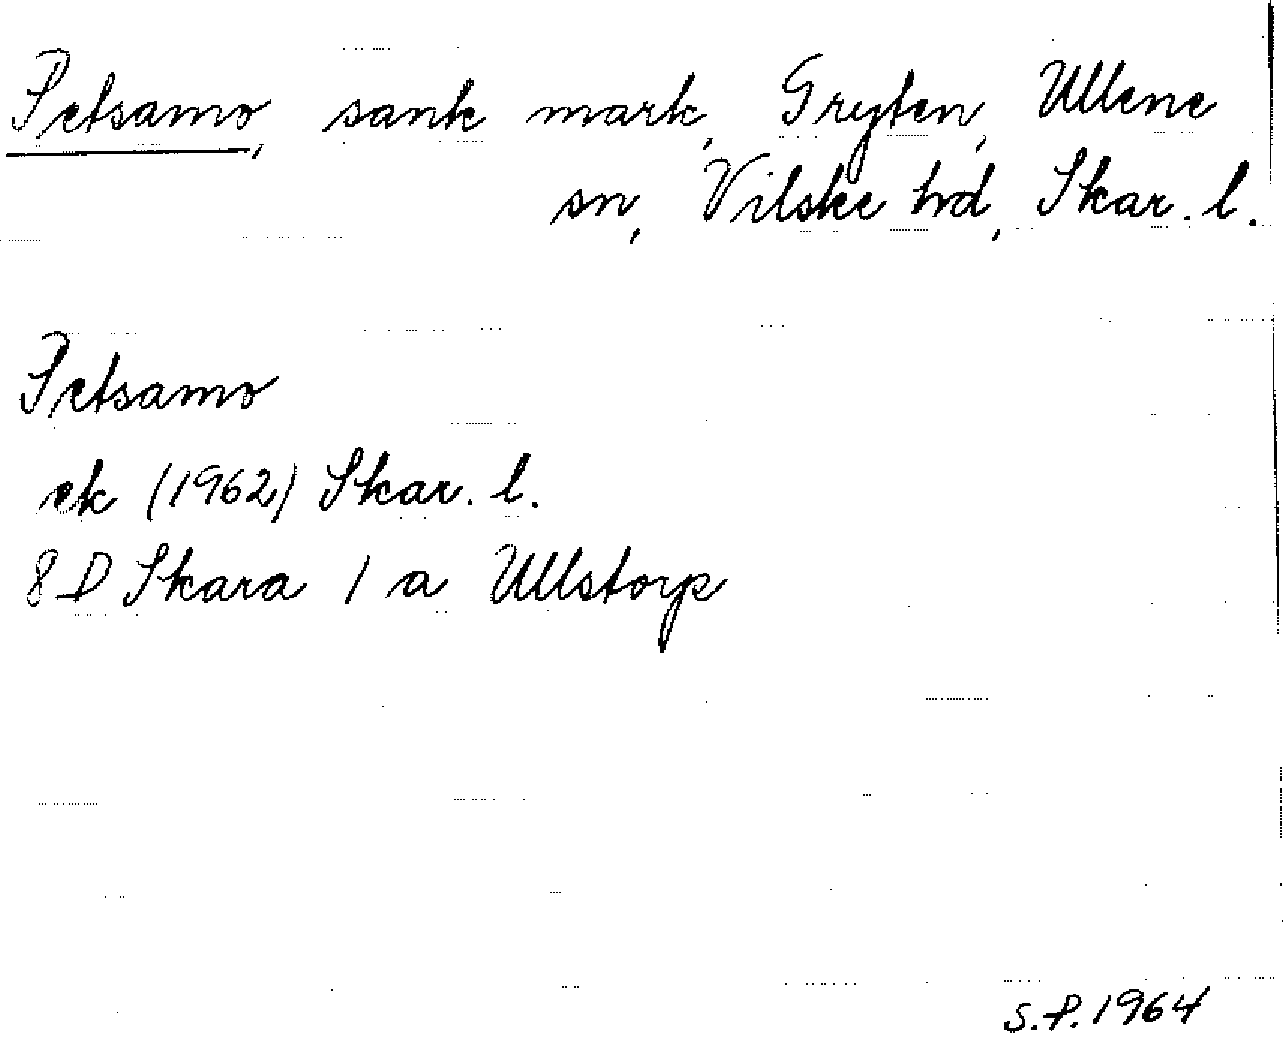 Petsamo, sank mark, Gryten, Ullene
sn, Vilske hd, Skar. l.
Petsamo
ek (1962) Skar. l.
8 D Skara 1 a Ullstorp
S.P. 1964